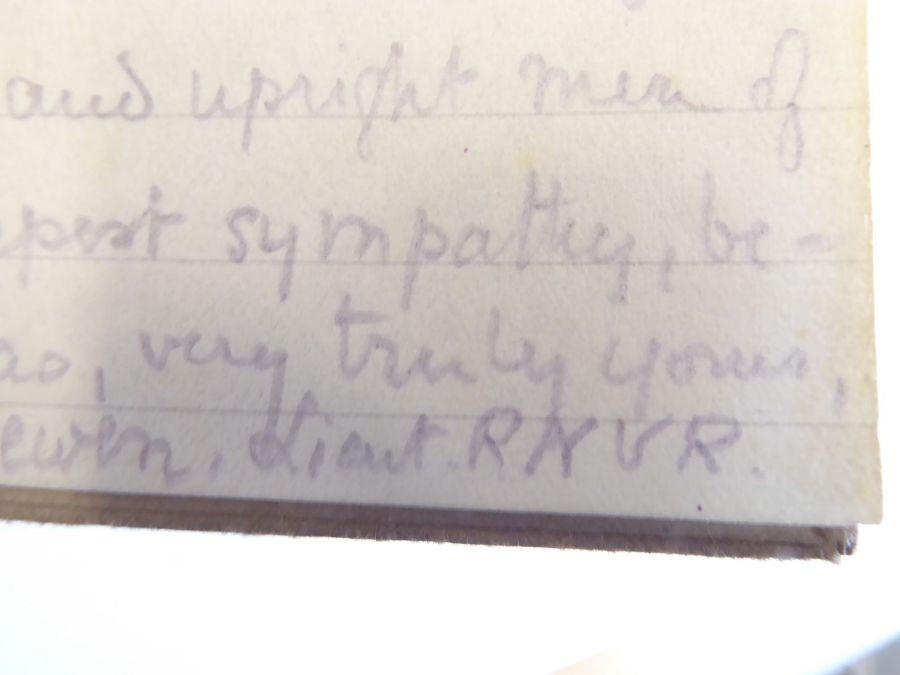 and upright men of
sympathy, be-
, very truly yours,
Lieut. RNVR.